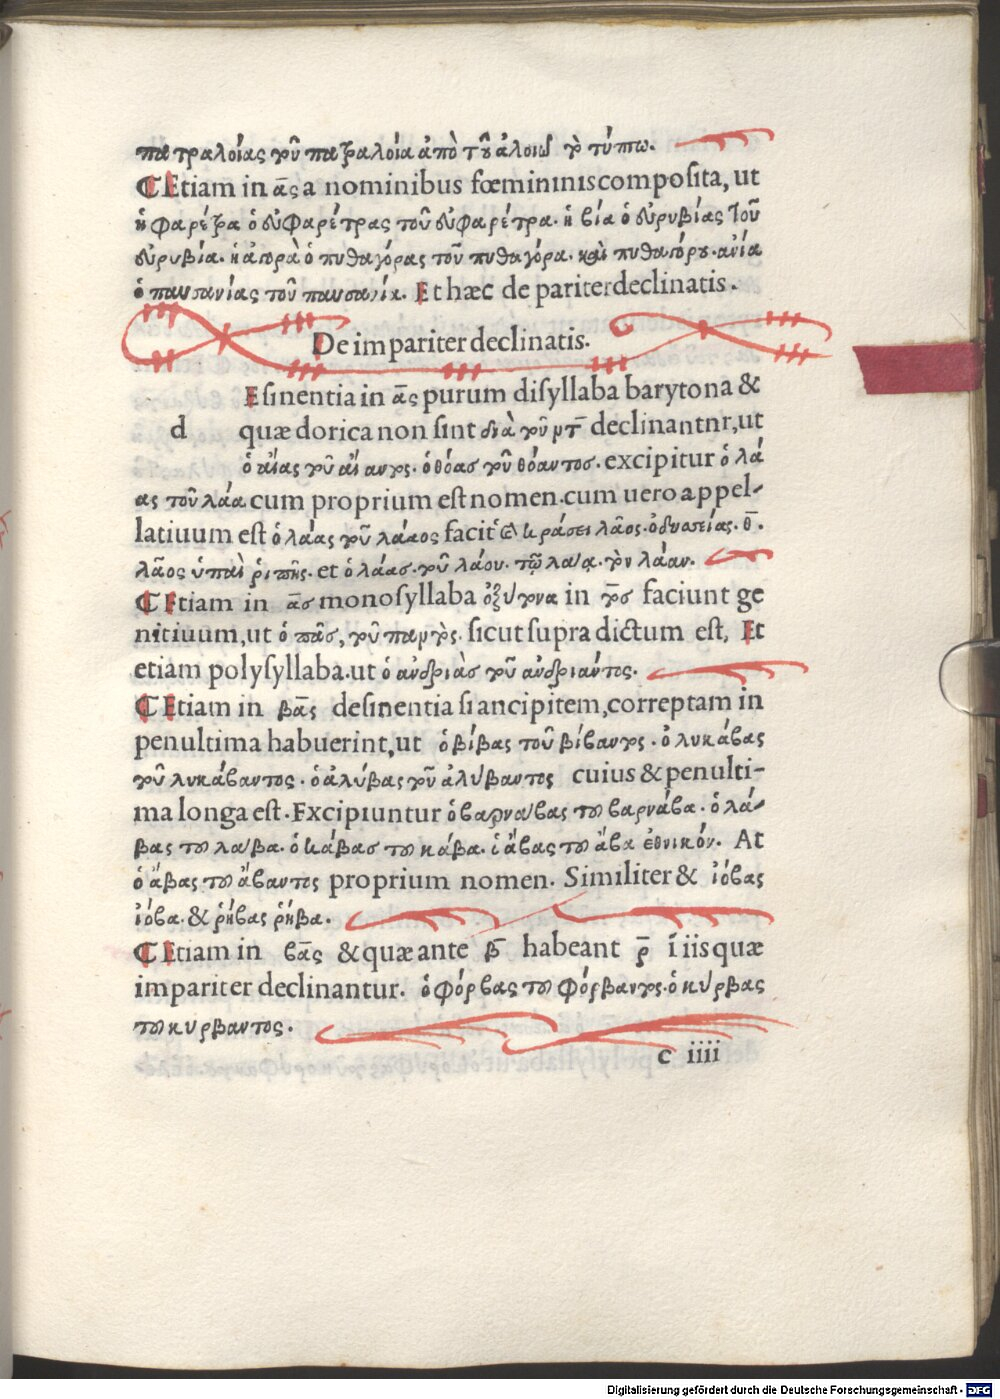 πατραλοίας τοῦ πατραλοία ἀπὸ τοῦ ἀλοιῶ τὸ τύπτω.
Etiam in ας a nominibus fœmininis composita, ut
ἡ φαρέτρα ὁ εὐφαρέτρας τοῦ εὐφαρέτρα. ἡ βία ὁ εὐρυβίας τοῦ
εὐρυβία. ἡ ἀγορὰ ὁ πυθαγόρας τοῦ πυθαγόρα. καὶ πυθαγόρου. ἀνία
ὁ παυσανίας τοῦ παυσανία. Et hæc de pariter declinatis.
De impariter declinatis.
Esinentia in ας purum disyllaba barytona &
d quæ dorica non sint διὰ τοῦ ντ declinantnr, ut
ὁ αἴας τοῦ αἴαντος. ὁ θόας τοῦ θόαντος. excipitur ὁ λά
ας τοῦ λάα cum proprium est nomen. cum uero appel-
latiuum est ὁ λάας τοῦ λάαος facit κράσει λᾶος. ὀδυσσείας. θ.
λᾶος ὑπαὶ ῥιπῆς. et ὁ λάας. τοῦ λάου. τῷ λάᾳ. τὸν λάαν.
Etiam in ας monosyllaba ὀξύτονα in τος faciunt ge
nitiuum, ut ὁ πᾶς, τοῦ παντὸς. sicut supra dictum est, Et
etiam polysyllaba. ut ὁ ἀνδριὰς τοῦ ἀνδριάντος.
Etiam in βας desinentia si ancipitem, correptam in
penultima habuerint, ut ὁ βίβας τοῦ βίβαντος. ὁ λυκάβας
τοῦ λυκάβαντος. ὁ ἀλύβας τοῦ ἀλύβαντος cuius & penulti-
ma longa est. Excipiuntur ὁ βαρνάβας του βαρνάβα. ὁ λά-
βας του λάβα. ὁ κάβας του κάβα. ὁ ἄβας του ἄβα ἐθνικόν. At
ὁ ἄβας του ἄβαντος proprium nomen. Similiter & ἰόβας
ἰόβα. & ῥήβας ῥήβα.
Etiam in βας & quæ ante β habeant ρ ī iis quæ
impariter declinantur. ὁ φόρβας του φόρβαντος. ὁ κύρβας
του κυρβαντος.
c iiii
Digitalisierung gefördert durch die Deutsche Forschungsgemeinschaft - DFG